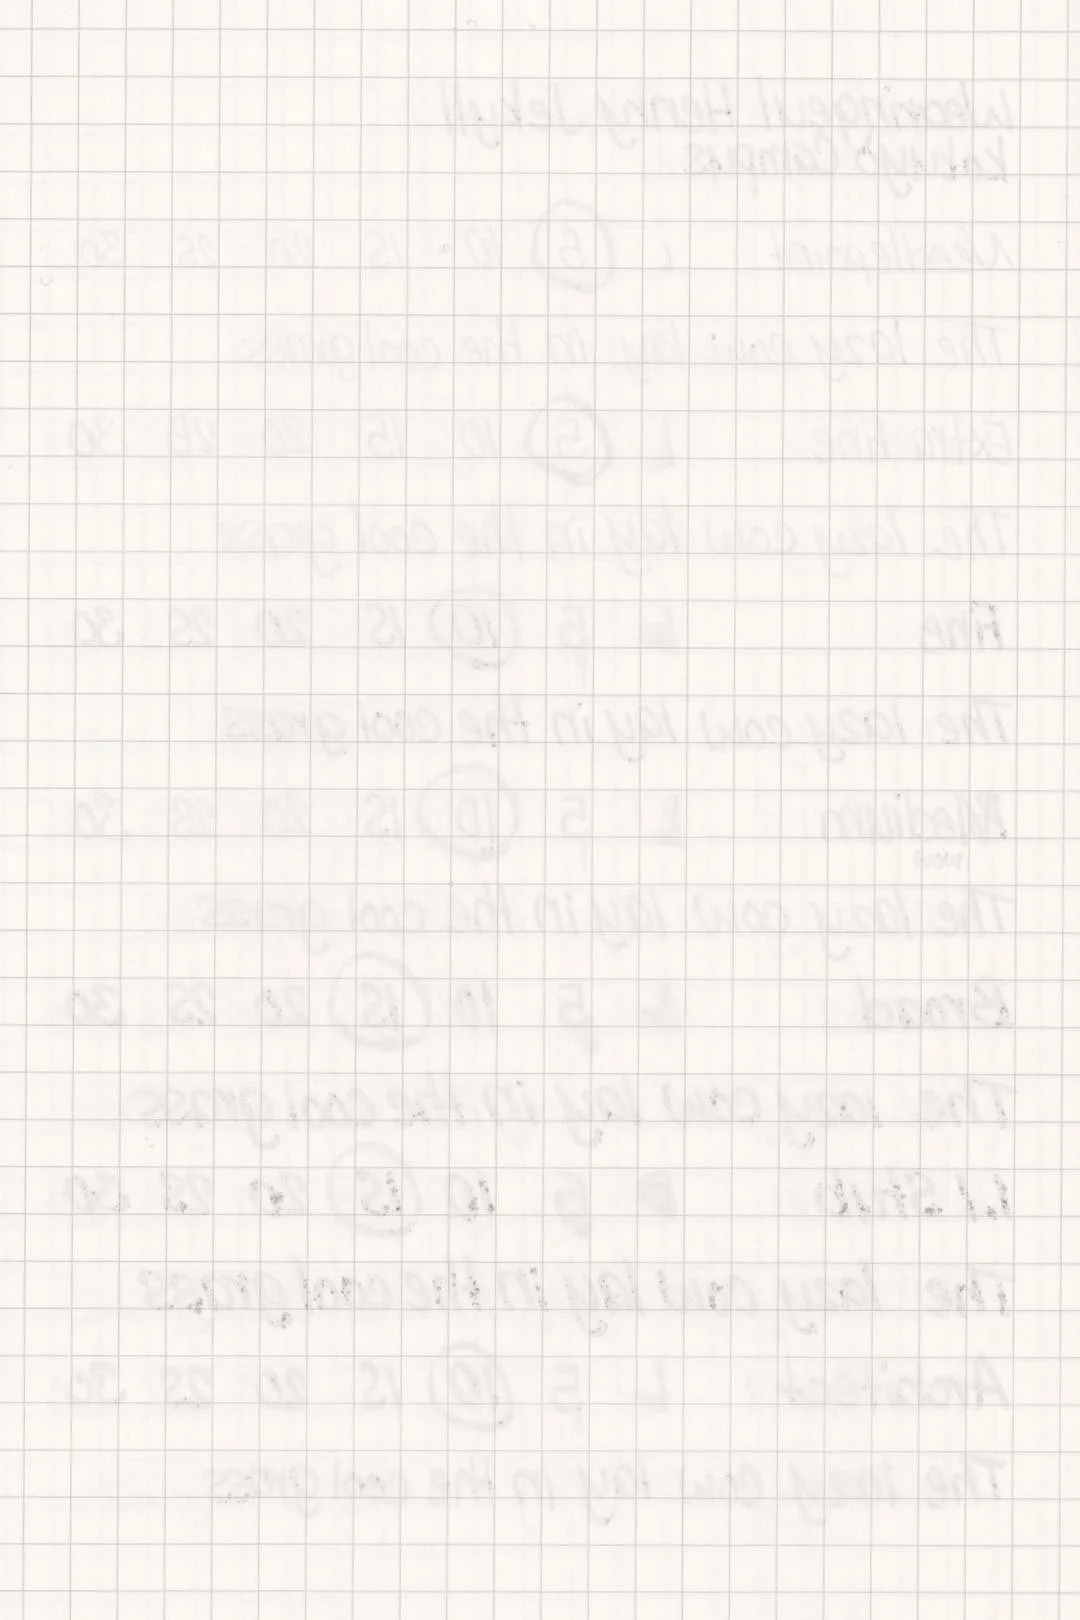 Wearingeul Henry Jekyll
Kokuyo Campus
Needlepoint L 5 10 15 20 25 30
The lazy cow lay in the cool grass
Extra fine L 5 10 15 20 25 30
The lazy cow lay in the cool grass
Fine L 5 10 15 20 25 30
The lazy cow lay in the cool grass
Medium L 5 10 15 20 25 30
wow
The lazy cow lay in the cool grass
Broad L 5 10 15 20 25 30
The lazy cow lay in the cool grass
1.1 Stub 5 10 15 20 25 30
The lazy cow lay in the cool grass
Architect L 5 10 15 20 25 30
The lazy cow lay in the cool grass